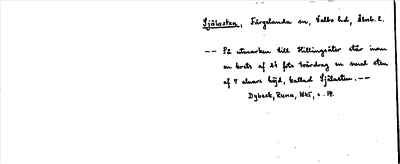 Själasten, Färgelanda sn, Valbo hd, Älvsb. l.
-- På utmarken till Hillingsäter står inom
en krets af 24 fots tvärdrag en smal sten
af 5 alnars höjd, kallad Själasten. --
Dybeck, Runa, 1845, s. 19.